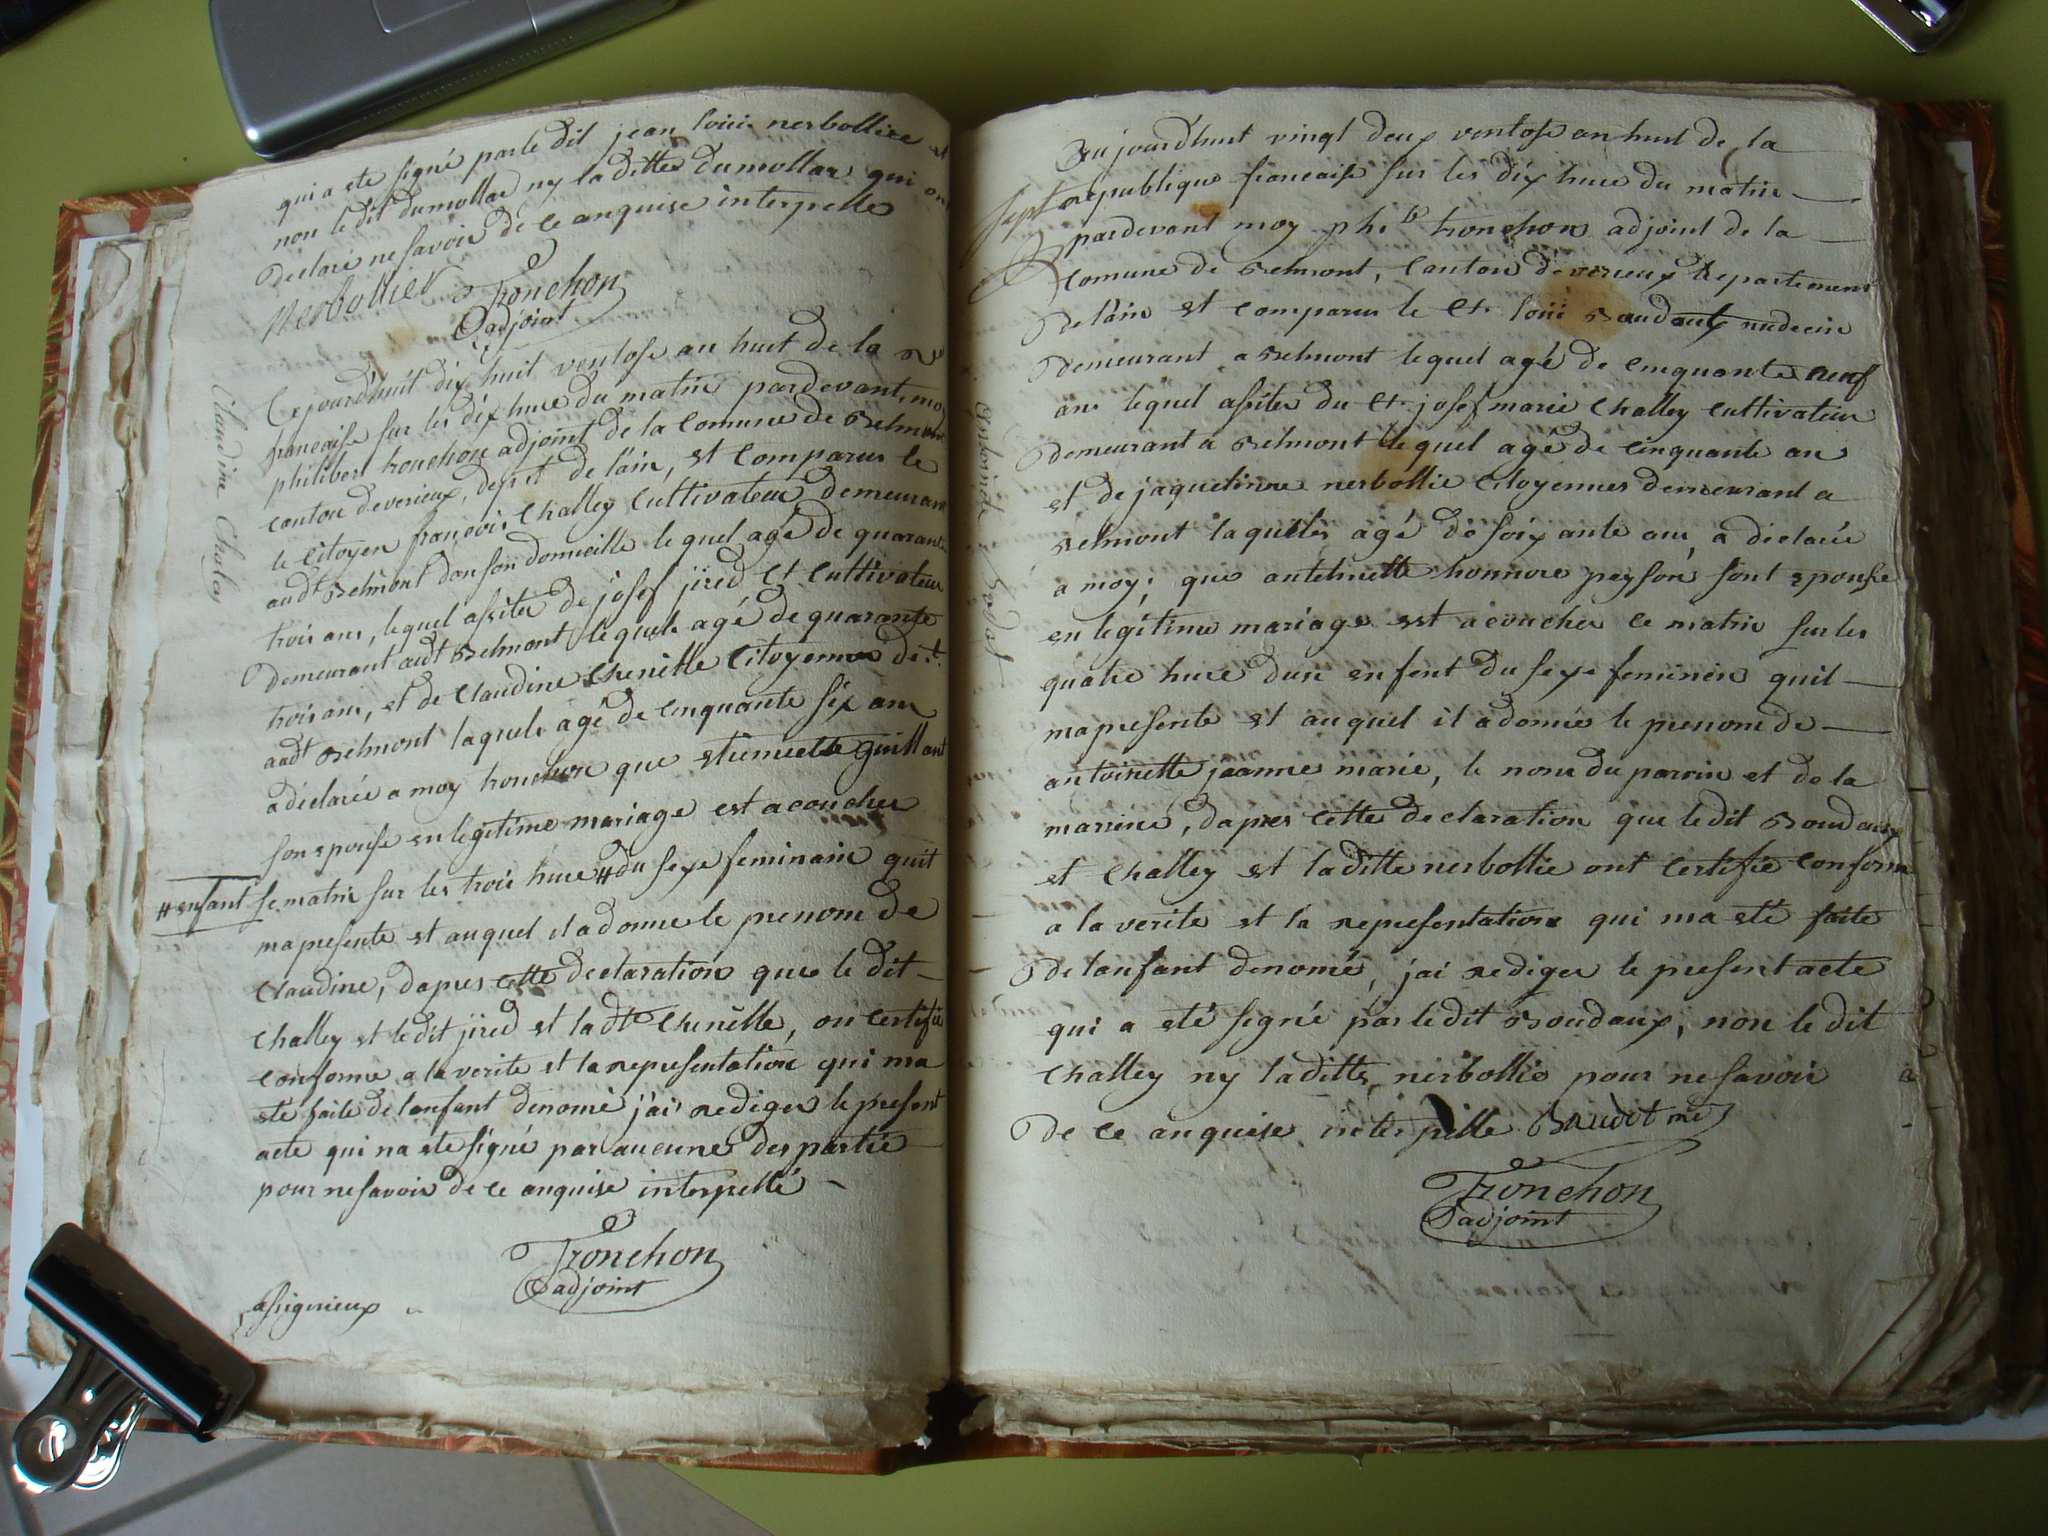 qui a ete signé par le dit jean loui nerbollier et
non le dit dumollar ny la ditte dumollar qui on
declaré ne savoir de ce anquise interpelle
Nerbollier Tronchon
adjoint
Claudine Chaley
Cejourd'huit dix huit ventose an huit de la
francaise sur les dix hure du matin pardevant mo
philibert tronchon adjoint de la comune de Belmont
canton de verieux, depr.t de l'ain, et comparus le
le citoyen francois Challey cultivateur demeurant
audt Belmont don son domicille lequel agé de quarante
trois ans, lequel assiter de josef jired ct cultivateur
demeurant audt Belmont lequels agé de quarante
trois ans, et de claudine chenille citoyenne det.
audt Belmont laquele agé de cinquante six ans
a déclarée a moy tronchon que etiennette guillant
son epouse en legitime mariage est acoucher
# enfant
le matin sur les trois hure # du sexe feminain quil
ma presente et auquel il a donne le prenom de
claudine, dapres cette declaration que le dit
challey et le dit jired et ladt chenille, on certifié
conforme a la verite et la representation qui ma
eté faite de lanfant denomé j'ai rediger le present
acte qui na ete signé par aucune des partie
pour ne savoir de ce anquise interpellé
Tronchon
adjoint
assignieux
Aujourdhuit vingt deux ventose an huit de la
sept
republique francaise sur les dix hure du matin
pardevant moy phi.b tronchon adjoint de la
comune de Belmont, canton de verieux departement
de l'ain et comparus le Ct. loui Baudaux medecin
demeurant a Belmont lequel agé de cinquante neuf
ans lequel assiter du Ct. josef marie Challey cultivateur
demeurant a Belmont lequel agé de cinquante an
et de jaquetinne nerbollie citoyennes demeurant a
Belmont laquelles agé de soixante ans, a déclarée
a moy, que antoinette honnore peyson sont epouse
en legitime mariage est acoucher ce matin sur les
quatre hure d'un enfent du sexe feminin quil
ma presente et auquel il a donnée le prenom de
antoinette jeanne marie, le nom du parrin et de la
marrine, dapres cette declaration que le dit Boudaux
et Challey et la ditte nerbollie ont certifié conform
a la verite et la representation qui ma eté faite
de lanfant denomé, j'ai rediger le present acte
qui a eté signé par le dit Boudaux, non le dit
challey ny la ditte nerbollie pour ne savoir
de ce anquise interpelle Baudot me
Tronchon
adjoint